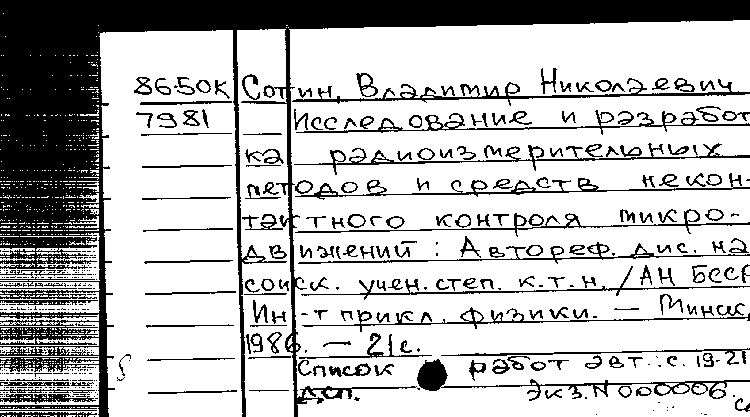 86-50К Сотин, Владимир Николаевич
7981 Исследование и разработ
ка радиоизмерительных
методов и средств некон-
тактного контроля микро-
движений : Автореф. дис. на
соиск. учен. степ. к.т.н. / АН БССР
Ин-т прикл. физики. — Минск,
1986. — 21с.
Список работ авт.: с. 19-21
Д.сп. Экз. N 000006.